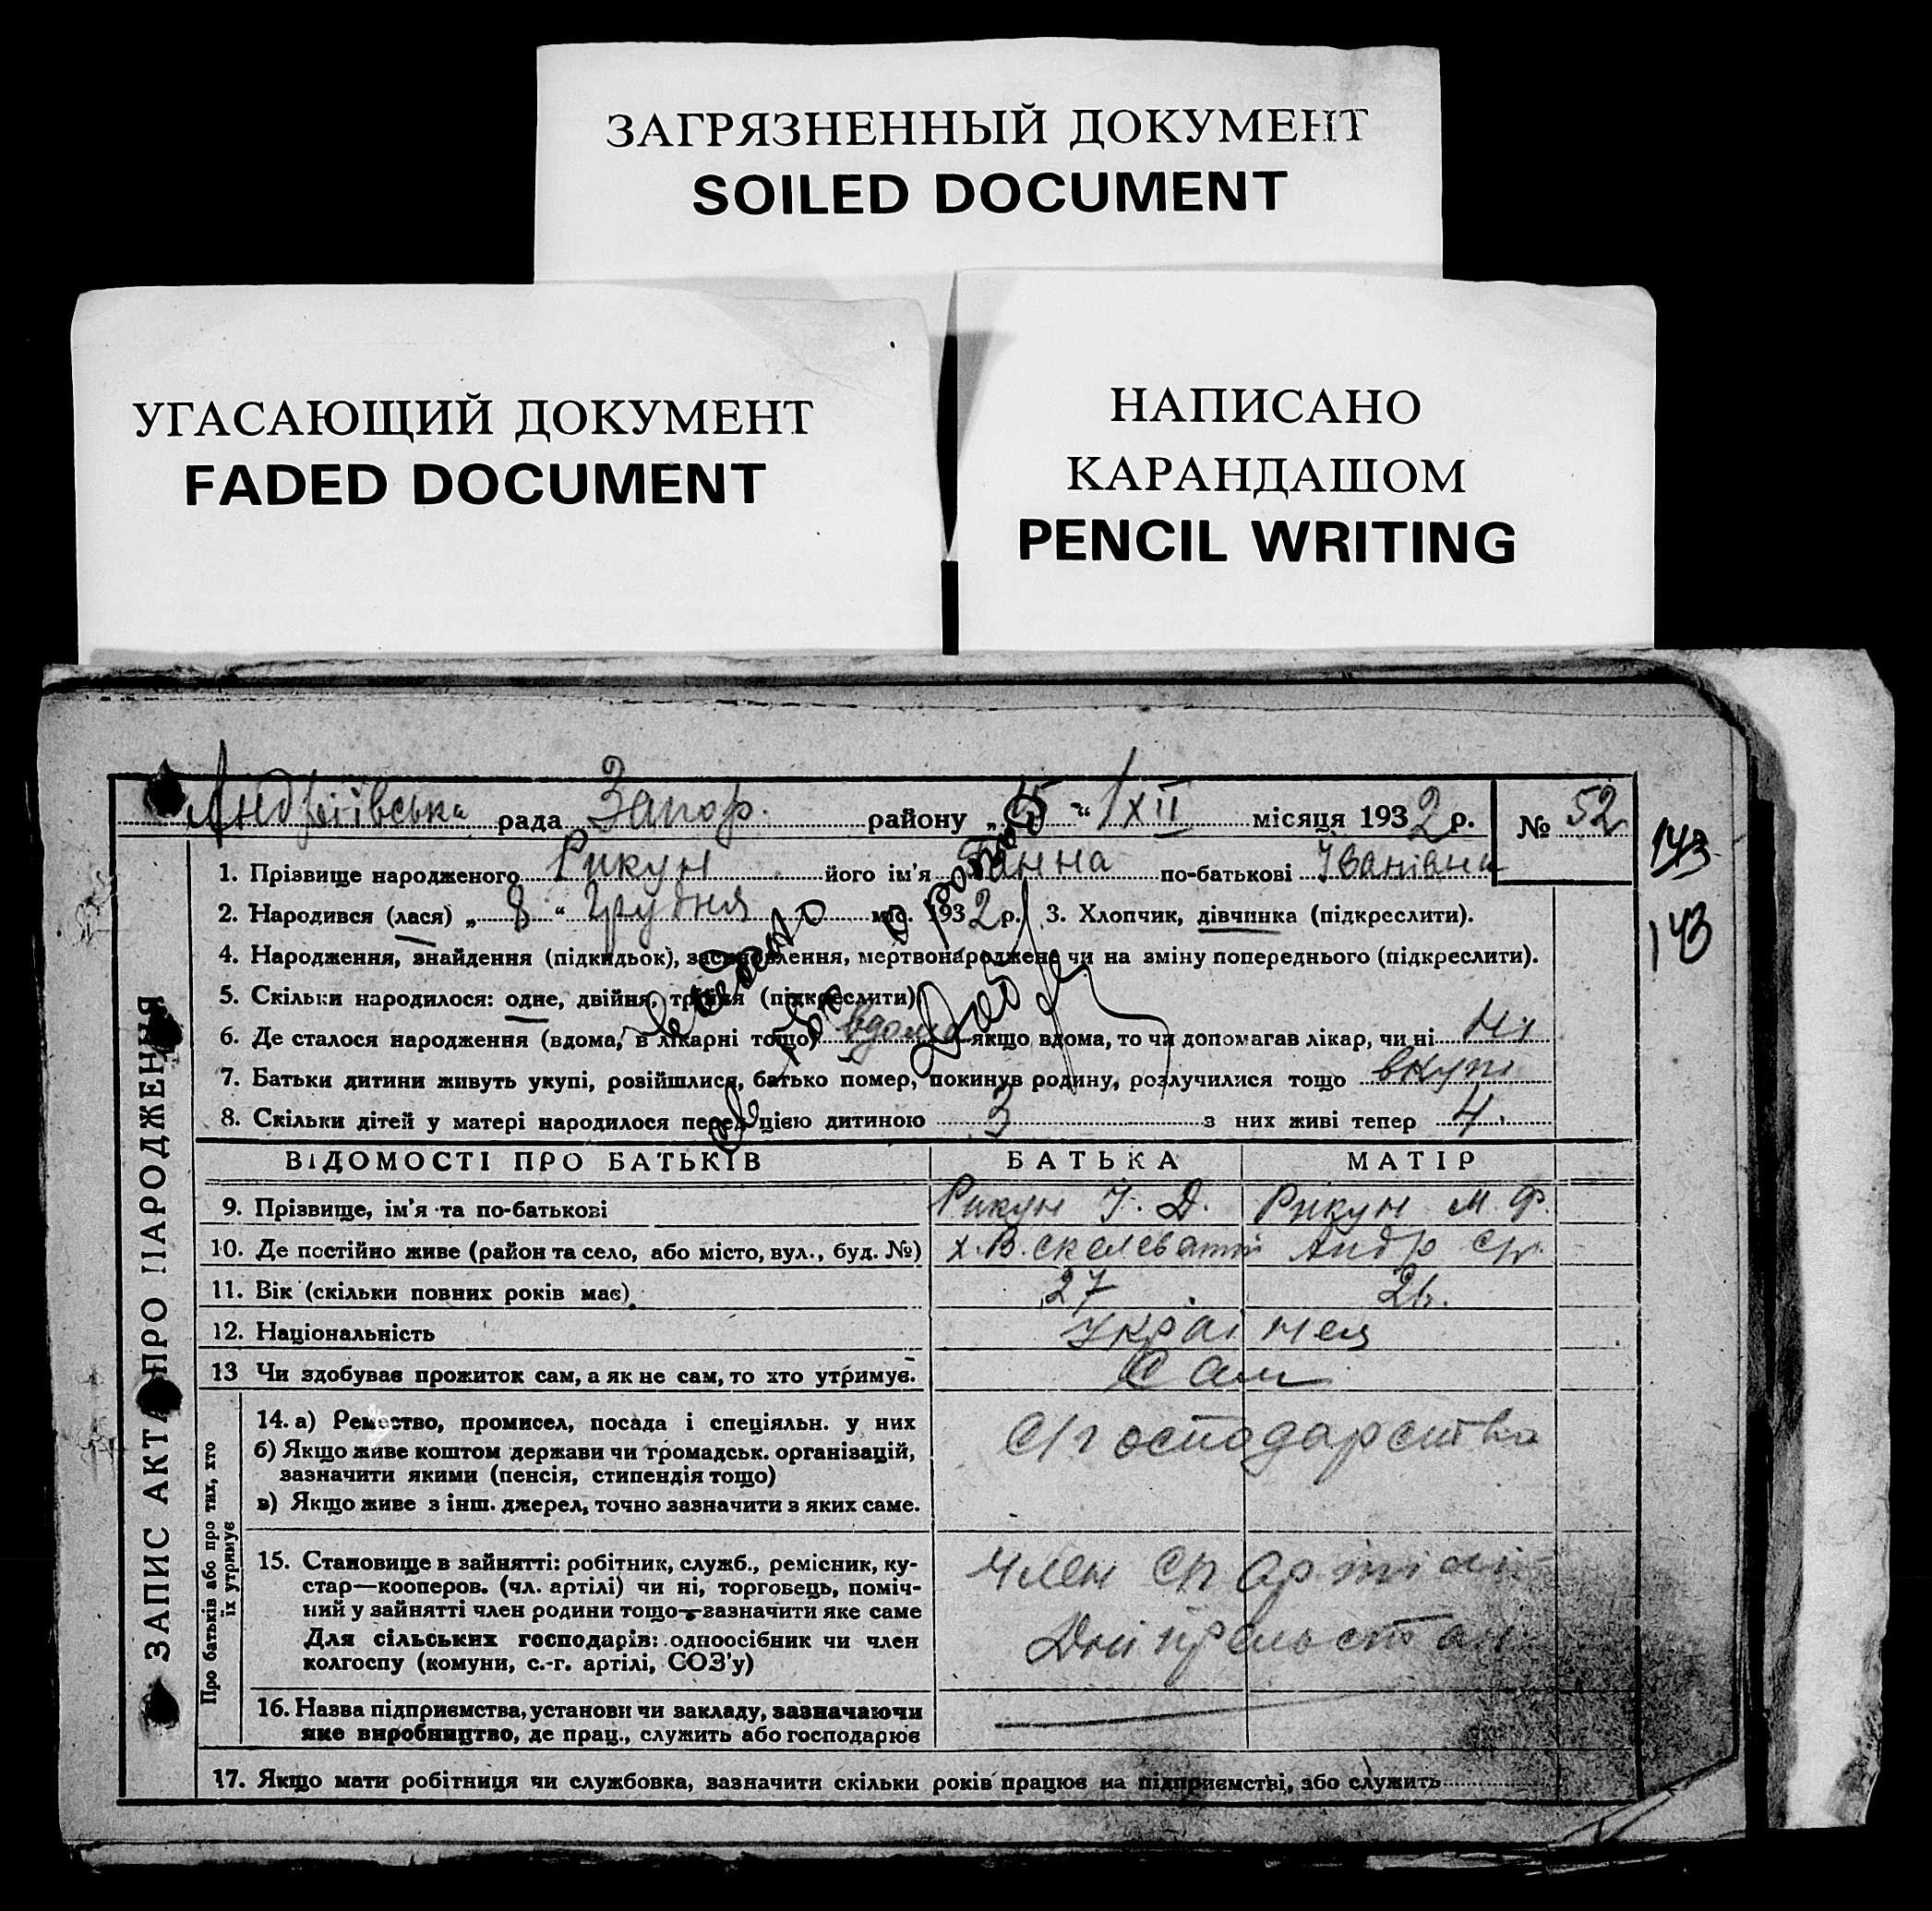 ЗАГРЯЗНЕННЫЙ ДОКУМЕНТ
SOILED DOCUMENT
УГАСАЮЩИЙ ДОКУМЕНТ
FADED DOCUMENT
НАПИСАНО
КАРАНДАШОМ
PENCIL WRITING
Андріївська рада Запор. району „ “ XII місяця 1932 р. № 52
143
1. Прізвище народженого Рикун його ім'я Ганна по-батькові Іванівна
2. Народився (лася) „ 8 “ Грудня міс. 1932 р. 3. Хлопчик, дівчинка (підкреслити).
143
4. Народження, знайдення (підкидьок), засиновлення, мертвонароджене чи на зміну попереднього (підкреслити).
5. Скільки народилося: одне, двійня, трійня (підкреслити)
6. Де сталося народження (вдома, в лікарні тощо) вдома якщо вдома, то чи допомагав лікар, чи ні Ні
7. Батьки дитини живуть укупі, розійшлися, батько помер, покинув родину, розлучилися тощо вкупі
8. Скільки дітей у матері народилося перед цією дитиною 3 з них живі тепер 4
ЗАПИС АКТА ПРО НАРОДЖЕННЯ
ВІДОМОСТІ ПРО БАТЬКІВ БАТЬКА МАТІР
9. Прізвище, ім'я та по-батькові Рикун І. Д. Рикун М. Ф.
10. Де постійно живе (район та село, або місто, вул., буд. №) х. В. Андр с/р.
11. Вік (скільки повних років має) 27 26.
12. Національність
13 Чи здобуває прожиток сам, а як не сам, то хто утримує. Сам
Про батьків або про тих, хто
їх утримує
14. а) Ремество, промисел, посада і спеціяльн. у них
б) Якщо живе коштом держави чи громадськ. організацій,
зазначити якими (пенсія, стипендія тощо)
в) Якщо живе з інш. джерел, точно зазначити з яких саме.
С/господарства
15. Становище в зайнятті: робітник, служб., ремісник, ку-
стар—кооперов. (чл. артілі) чи ні, торговець, поміч-
ний у зайнятті член родини тощо—зазначити яке саме
Для сільських господарів: одноосібник чи член
колгоспу (комуни, с.-г. артілі, СОЗ'у)
Член с/г артілі
16. Назва підприємства, установи чи закладу, зазначаючи
яке виробництво, де прац., служить або господарює
17. Якщо мати робітниця чи службовка, зазначити скільки років працює на підприємстві, або служить